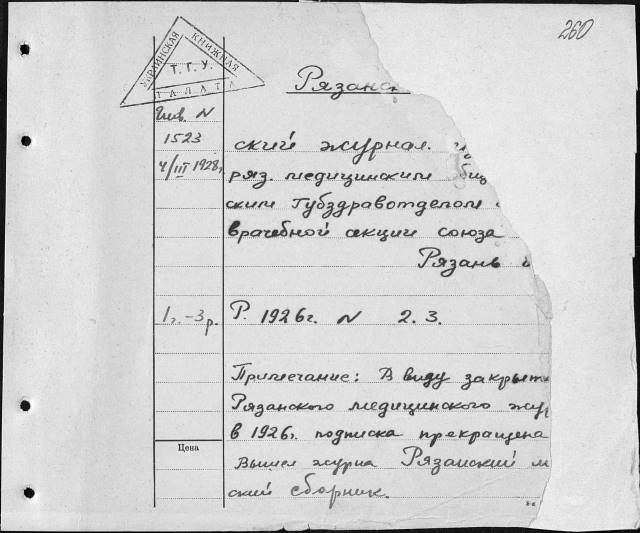 260
УКРАИНСКАЯ КНИЖНАЯ ПАЛАТА
Т.Г.У.
Рязанс
Инв. N
1523
4/III 1928г.
ский журнал.
ряз. медицинским
ским Губздравотделом
врачебной секции союза
Рязань
1г.-3р.
Р. 1926г. N 2. 3.
Примечание: В виду закрыт
Рязанского медицинского жур
в 1926г. подписка прекращена
Цена
Вышел журна Рязанский м
ский сборник.